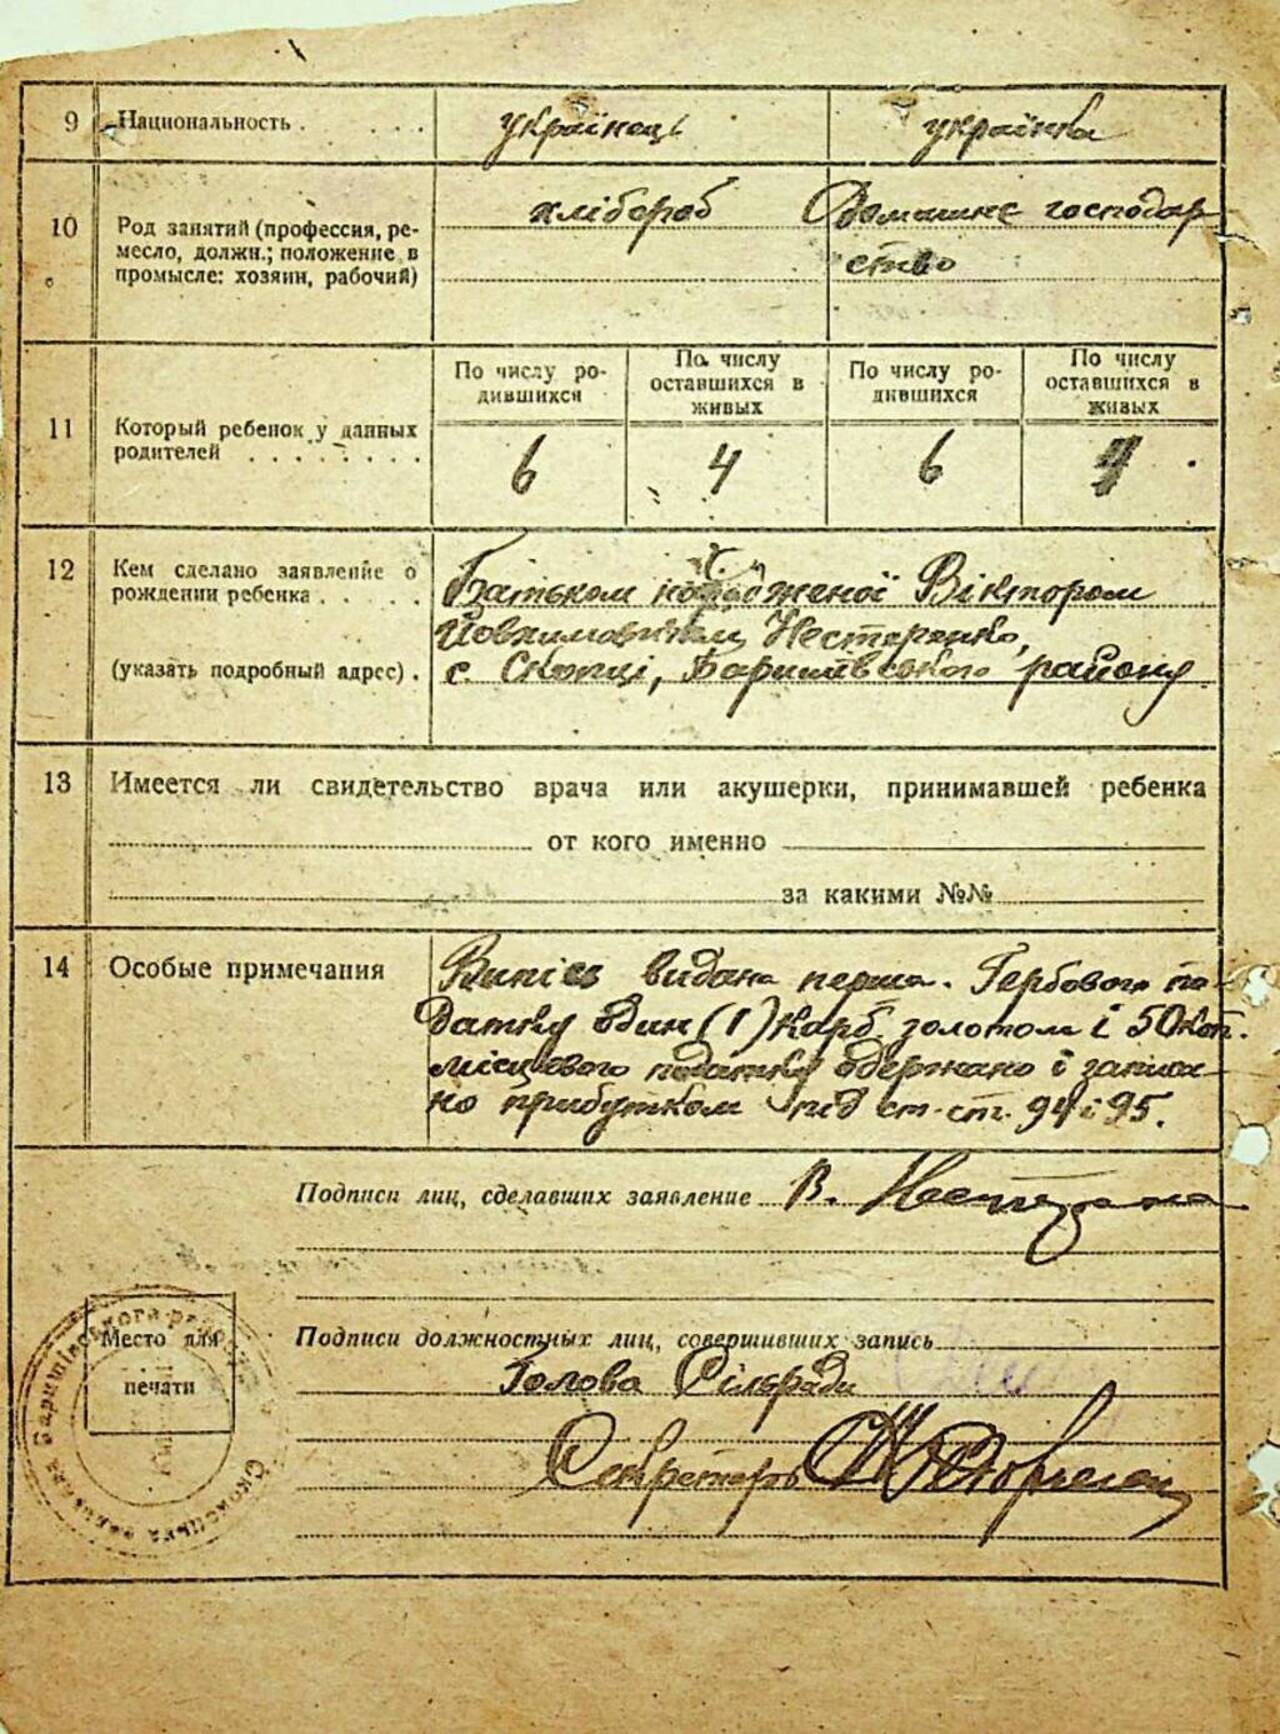 9 Национальность . . . . . українець українка
10 Род занятий (профессия, ре-
месло, должн.; положение в
промысле: хозяин, рабочий)
хлібороб Домашнє господар
ство
11 Который ребенок у данных
родителей . . . . . . . .
По числу ро-
дившихся
По числу
оставшихся в
живых
По числу ро-
дившихся
По числу
оставшихся в
живых
6 4 6 4
12 Кем сделано заявление о
рождении ребенка . . . . .
(указать подробный адрес) .
Батьком Віктором
Нестеренко,
с. Скопці, Баришівського району
13 Имеется ли свидетельство врача или акушерки, принимавшей ребенка
от кого именно
за какими №№
14 Особые примечания
Випись видана перша. Гербового по-
датку один (1) карб. золотом і 50 коп.
місцевого податку одержано і записа-
но прибутком під ст. ст. 94 і 95.
Подписи лиц, сделавших заявление В. Нестеренко
Подписи должностных лиц, совершивших запись
Голова Сільради
Секретарь
Место для
печати